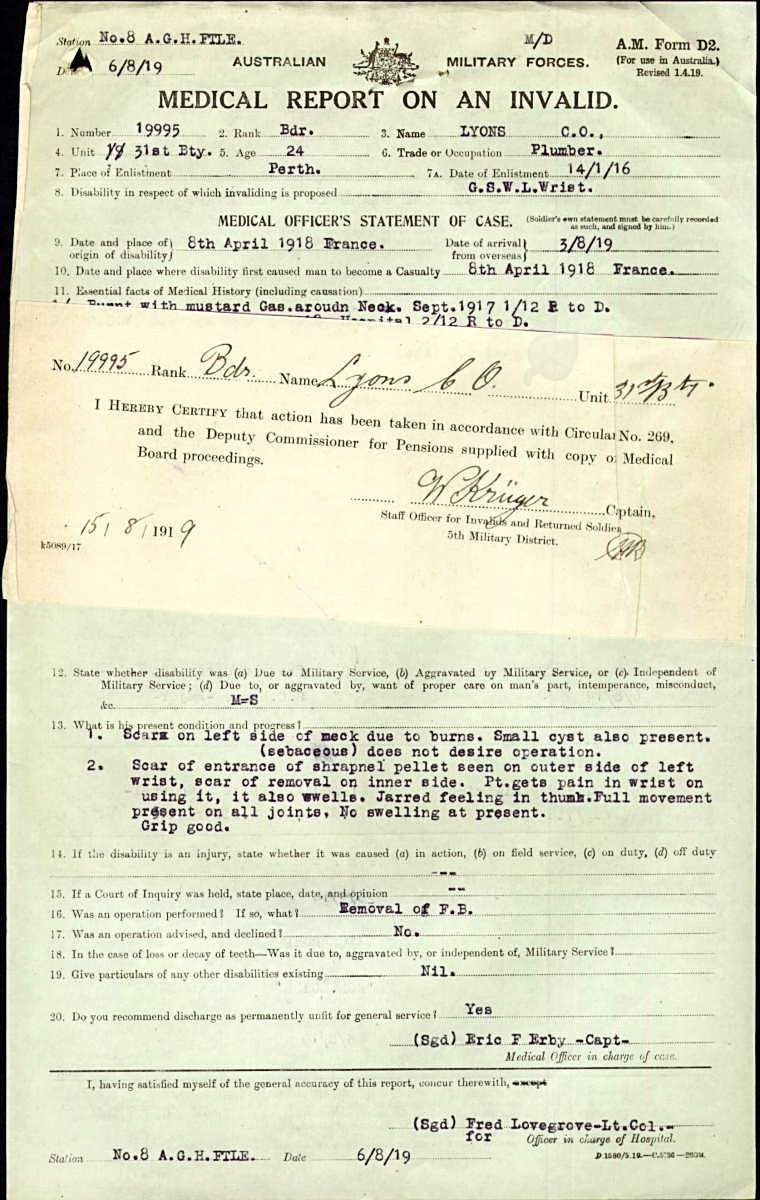 Station No.8 A.G.H.FTLE. M/D A.M. Form D2.
Date 6/8/19 AUSTRALIAN MILITARY FORCES. (For use in Australia.)
Revised 1.4.19.
MEDICAL REPORT ON AN INVALID.
1. Number 19995 2. Rank Bdr. 3. Name LYONS C.O.,
4. Unit 31st Bty. 5. Age 24 6. Trade or Occupation Plumber.
7. Place of Enlistment Perth. 7A. Date of Enlistment 14/1/16
8. Disability in respect of which invaliding is proposed G.S.W.L.Wrist.
MEDICAL OFFICER'S STATEMENT OF CASE. (Soldier's own statement must be carefully recorded
as such, and signed by him.)
9. Date and place of origin of disability 8th April 1918 France. Date of arrival from overseas 3/8/19
10. Date and place where disability first caused man to become a Casualty 8th April 1918 France.
11. Essential facts of Medical History (including causation)
1/ Burnt with mustard Gas.aroudn Neck. Sept.1917 1/12 R to D.
Hospital 2/12 R to D.
No. 19995 Rank Bdr. Name Lyons C O. Unit 31st Bty.
I HEREBY CERTIFY that action has been taken in accordance with Circular No. 269,
and the Deputy Commissioner for Pensions supplied with copy of Medical
Board proceedings.
W Krüger Captain,
Staff Officer for Invalids and Returned Soldiers
5th Military District.
15/8/1919
k5089/17
12. State whether disability was (a) Due to Military Service, (b) Aggravated by Military Service, or (c) Independent of
Military Service; (d) Due to, or aggravated by, want of proper care on man's part, intemperance, misconduct,
&c. M=S
13. What is his present condition and progress?
1. Scars on left side of neck due to burns. Small cyst also present.
(sebaceous) does not desire operation.
2. Scar of entrance of shrapnel pellet seen on outer side of left
wrist, scar of removal on inner side. Pt.gets pain in wrist on
using it, it also swells. Jarred feeling in thumb.Full movement
present on all joints, No swelling at present.
Grip good.
14. If the disability is an injury, state whether it was caused (a) in action, (b) on field service, (c) on duty, (d) off duty
---
15. If a Court of Inquiry was held, state place, date, and opinion --
16. Was an operation performed? If so, what? Removal of F.B.
17. Was an operation advised, and declined? No.
18. In the case of loss or decay of teeth—Was it due to, aggravated by, or independent of, Military Service?
19. Give particulars of any other disabilities existing Nil.
20. Do you recommend discharge as permanently unfit for general service? Yes
(Sgd) Eric F Erby -Capt-
Medical Officer in charge of case.
I, having satisfied myself of the general accuracy of this report, concur therewith, except
(Sgd) Fred Lovegrove-Lt.Col.-
for Officer in charge of Hospital.
Station No.8 A.G.H.FTLE. Date 6/8/19